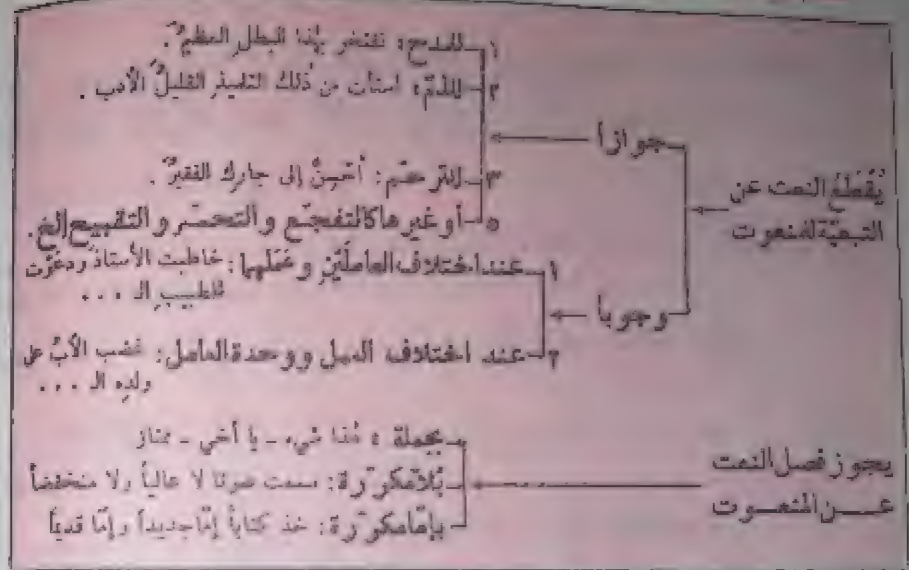 يُقْطَعُ النعت عن
التبعيّة للمنعوت
جوازاً
١ - للمدح: نفتخر بهٰذا البطل العظيمُ.
٢ - للذمّ: استأت من ذٰلك التلميذ القليلُ الأدب.
٣ - للترحّم: أحسِنْ إلى جارك الفقيرُ.
٥ - أو غيرها كالتفجّع والتحسّر والتقبيح إلخ.
وجوباً
١ - عند اختلاف العاملَيْن وعَمَلهما: خاطبت الأستاذَ ودعوْت
للطبيبِ الـ ...
٢ - عند اختلاف العمل ووحدة العامل: غضب الأبُ على
ولدِه الـ ...
يجوز فصل النعت
عن المنعوت
بجملة: هٰذا شيء - يا أخي - ممتاز
بلا مكرّرة: سمعت صوتا لا عالياً ولا منخفضاً
بإمّا مكرّرة: خذ كتاباً إمّا جديداً وإمّا قديماً